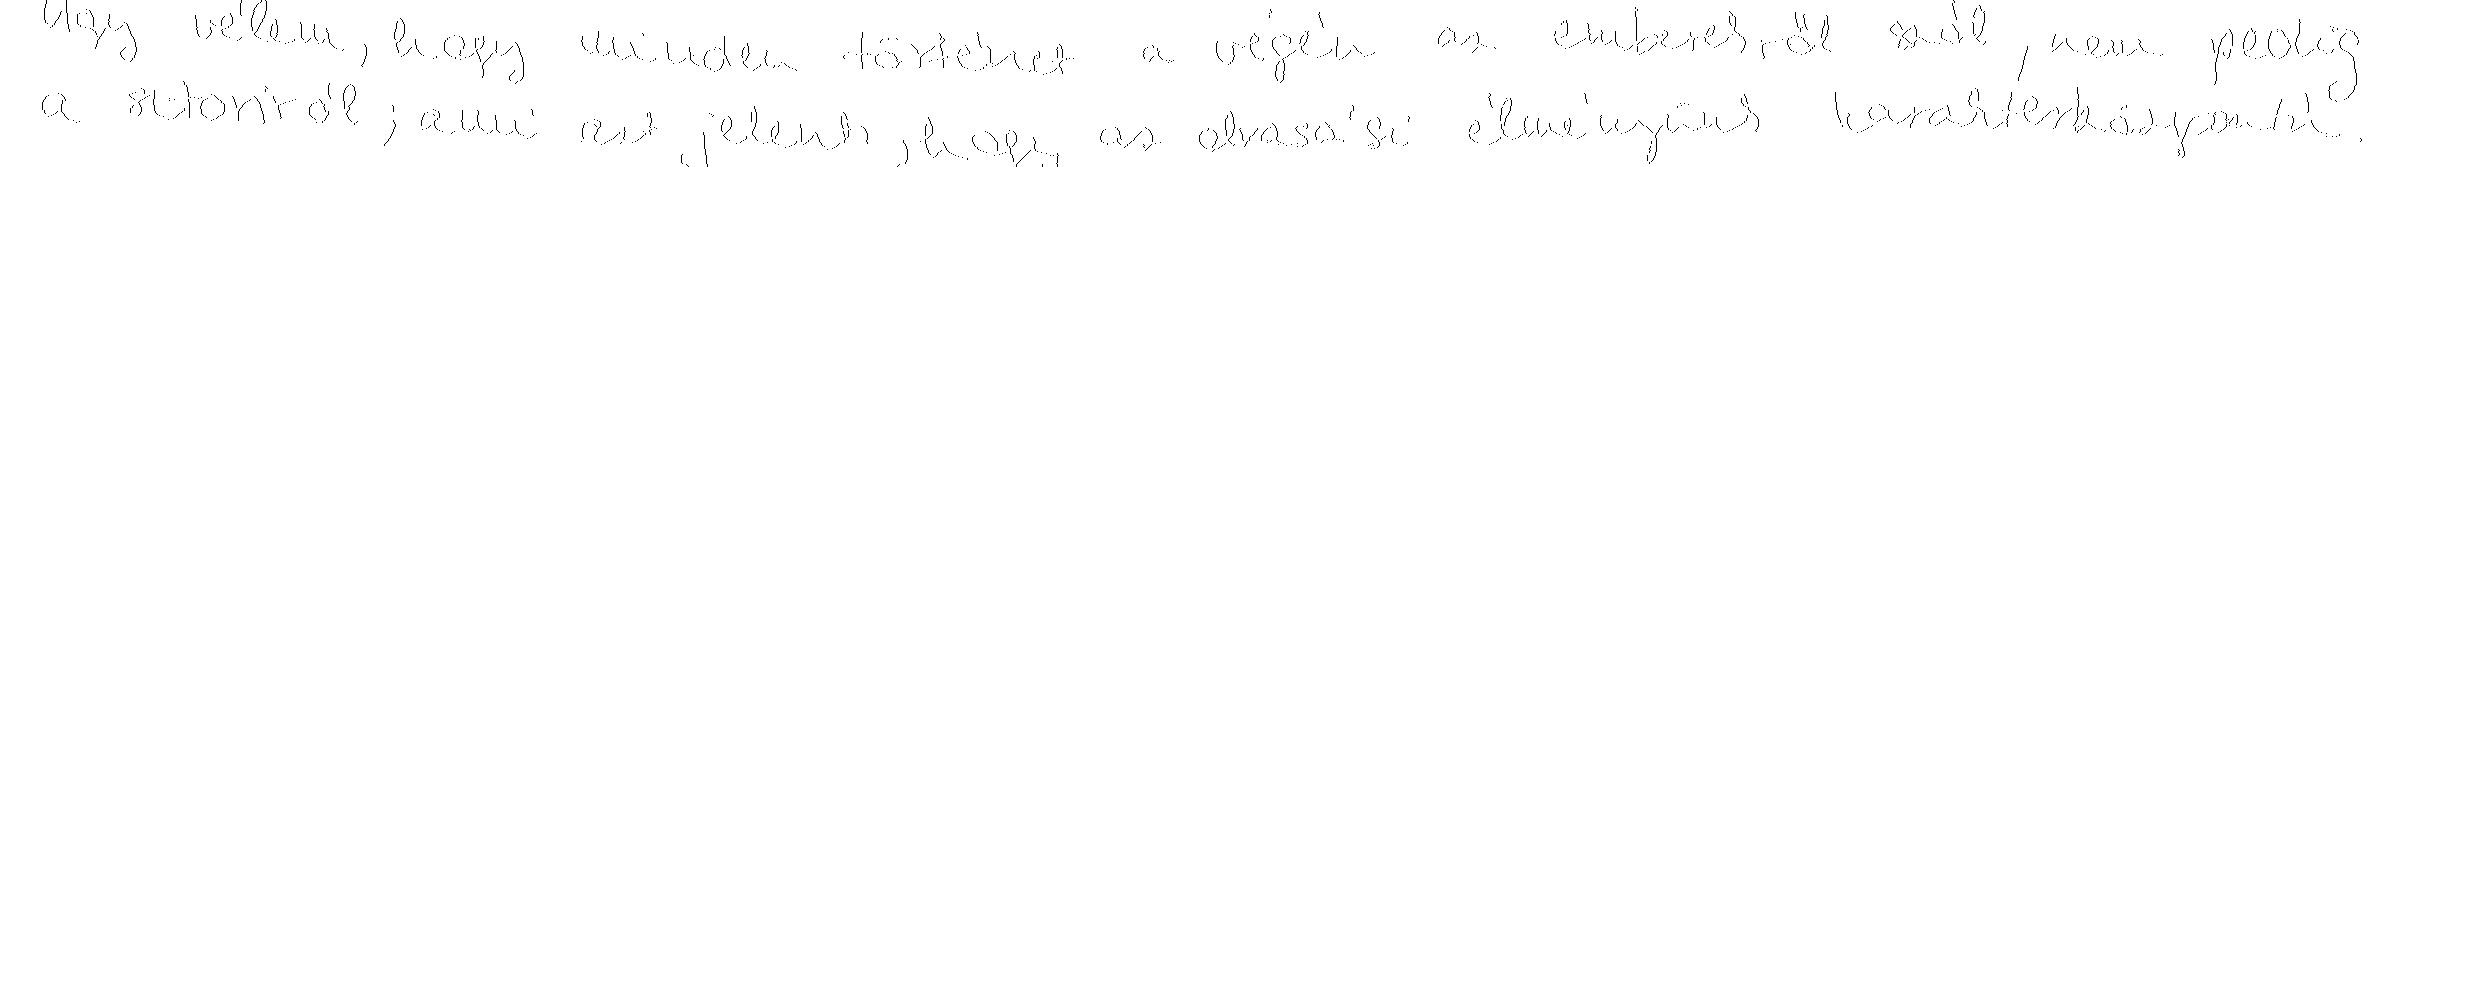 Úgy vélem, hogy minden történet a végén az emberekről szól, nem pedig
a sztoriról, ami azt jelenti, hogy az olvasási élményünk karakterközpontú.